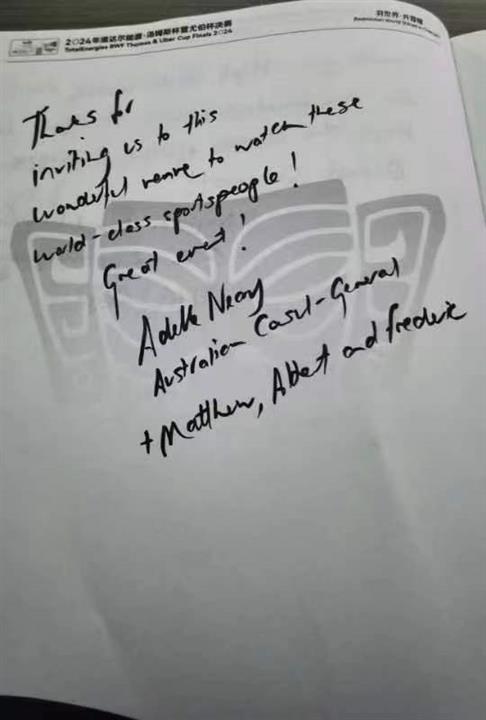 2024年道达尔能源·汤姆斯杯暨尤伯杯决赛
TotalEnergies BWF Thomas & Uber Cup Finals 2024
羽世界·共蓉耀
Thanks for
inviting us to this
wonderful venue to watch these
world-class sportspeople!
Great event!
Adelle Neary
Australian Consul-General
+ Matthew, Albert and Frederic